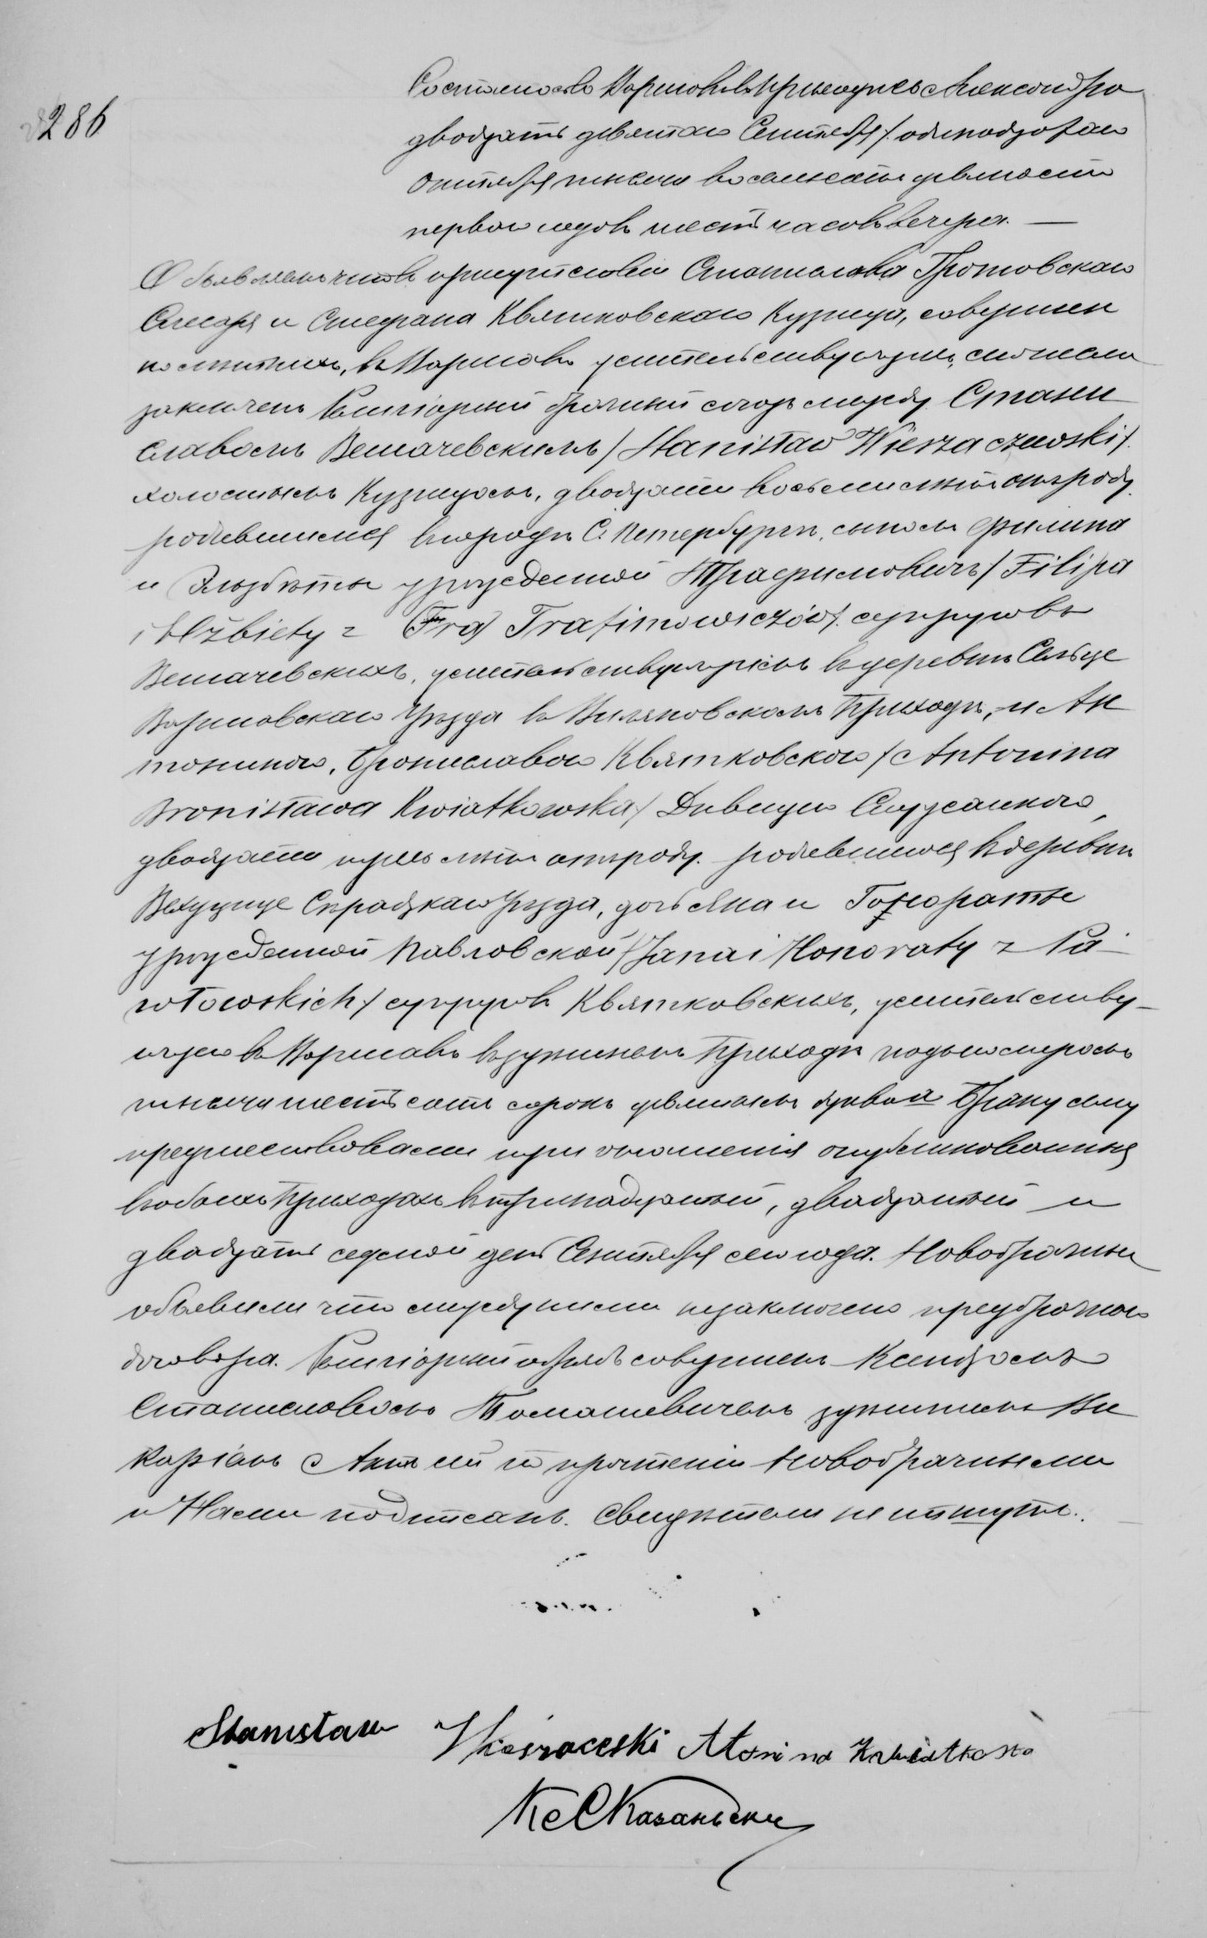 286
Состоялось въ Варшавѣ въ Приходѣ св. Александра
двадцать девятаго Сентября / одинадцатаго
Октября тысяча восемьсотъ девяносто
перваго года въ шесть часовъ вечера. —
Объявляемъ что въ присутствіи Станислава Гротовскаго
Слесаря и Стефана Квятковскаго Кузнеца, совершен
нолѣтнихъ, въ Варшавѣ жительствующихъ, сего числа
заключенъ Религіозный брачный союзъ между Стани
славомъ Вешачевскимъ / Stanisław Wieszaczewski /.
холостымъ Кузнецомъ, двадцати восьми лѣтъ отъ роду,
родившимся въ городѣ С. Петербургѣ, сыномъ Филипа
и Эльзбѣты урожденной Трафимовичъ / Filipa
i Elżbiety z Trafimowiczów /. супруговъ
Вешачевскихъ, жительствующимъ въ деревнѣ Сельце
Варшавскаго Уѣзда въ Виляновскомъ Приходѣ, и Ан
тониною, Брониславою Квятковскою / Antonina
Bronisława Kwiatkowska / Дѣвицею
двадцати трехъ лѣтъ отъ роду. родившеюся въ деревнѣ
Сѣрадзкаго Уѣзда, дочь Яна и Гонораты
урожденной Павловской / Jana i Honoraty z Pa-
włowskich / супруговъ Квятковскихъ, жительству-
ющею въ Варшавѣ въ здѣшнемъ Приходѣ подъ номеромъ
тысяча шестьсотъ сорокъ девятымъ буква а Браку сему
предшествовали три оглашенія опубликованныя
въ обоихъ Приходахъ въ тринадцатый, двадцатый и
двадцать седьмой день Сентября сего года. Новобрачные
объявили что между ними незаключено предбрачнаго
договора. Религіозный обрядъ совершенъ Ксендзомъ
Станиславомъ Томашевичемъ здѣшнимъ Ви
каріемъ Актъ сей по прочтеніи Новобрачными
и Нами подписанъ. Свидѣтели не пишутъ.
Stanisław Wieszaceski Atonina Kwiatkoska
Кс С Казаньски